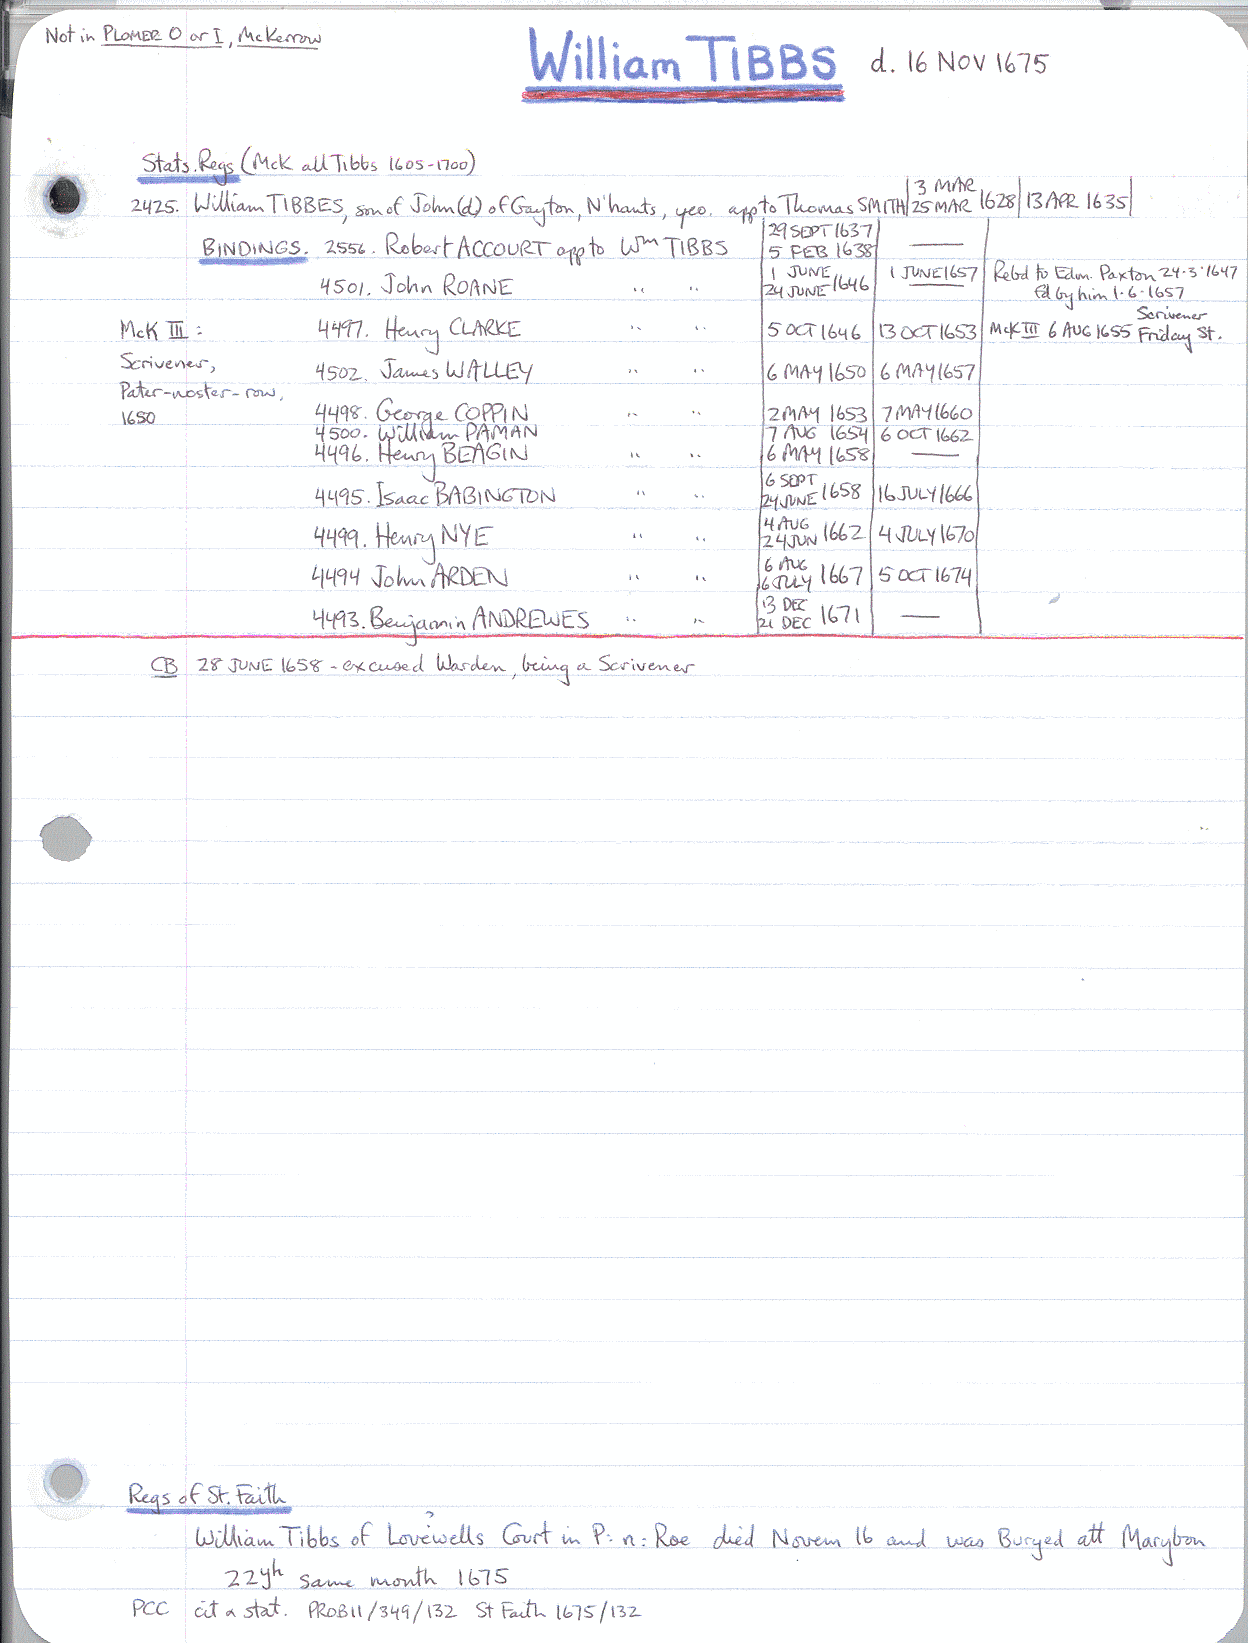 Not in PLOMER O or I, McKerrow
William TIBBS d. 16 NOV 1675
Stats. Regs (McK all Tibbs 1605-1700)
2425. William TIBBES, son of John (d) of Gayton, N'hants, yeo. app to Thomas SMITH 3 MAR 25 MAR 1628 13 APR 1635
BINDINGS. 2556. Robert ACCOURT app to Wm TIBBS 29 SEPT 1637 5 FEB 1638 —
4501. John ROANE " " 1 JUNE 24 JUNE 1646 1 JUNE 1657 Rebd to Edm. Paxton 24·3·1647
fd by him 1·6·1657
McK III : 4497. Henry CLARKE " " 5 OCT 1646 13 OCT 1653 McK III 6 AUG 1655 Scrivener Friday St.
Scrivener, 4502. James WALLEY " " 6 MAY 1650 6 MAY 1657
Pater-noster-row,
1650 4498. George COPPIN " " 2 MAY 1653 7 MAY 1660
4500. William PAMAN 7 AUG 1654 6 OCT 1662
4496. Henry BEAGIN " " 6 MAY 1658 —
4495. Isaac BABINGTON " " 6 SEPT 24 JUNE 1658 16 JULY 1666
4499. Henry NYE " " 4 AUG 24 JUN 1662 4 JULY 1670
4494 John ARDEN " " 6 AUG 6 JULY 1667 5 OCT 1674
4493. Benjamin ANDREWES " " 13 DEC 21 DEC 1671 —
CB 28 JUNE 1658 - excused Warden, being a Scrivener
Regs of St. Faith
?
William Tibbs of Lovewells Court in P: n: Roe died Novem 16 and was Buryed att Marybon
22yh same month 1675
PCC cit & stat. PROB11/349/132 St Faith 1675/132